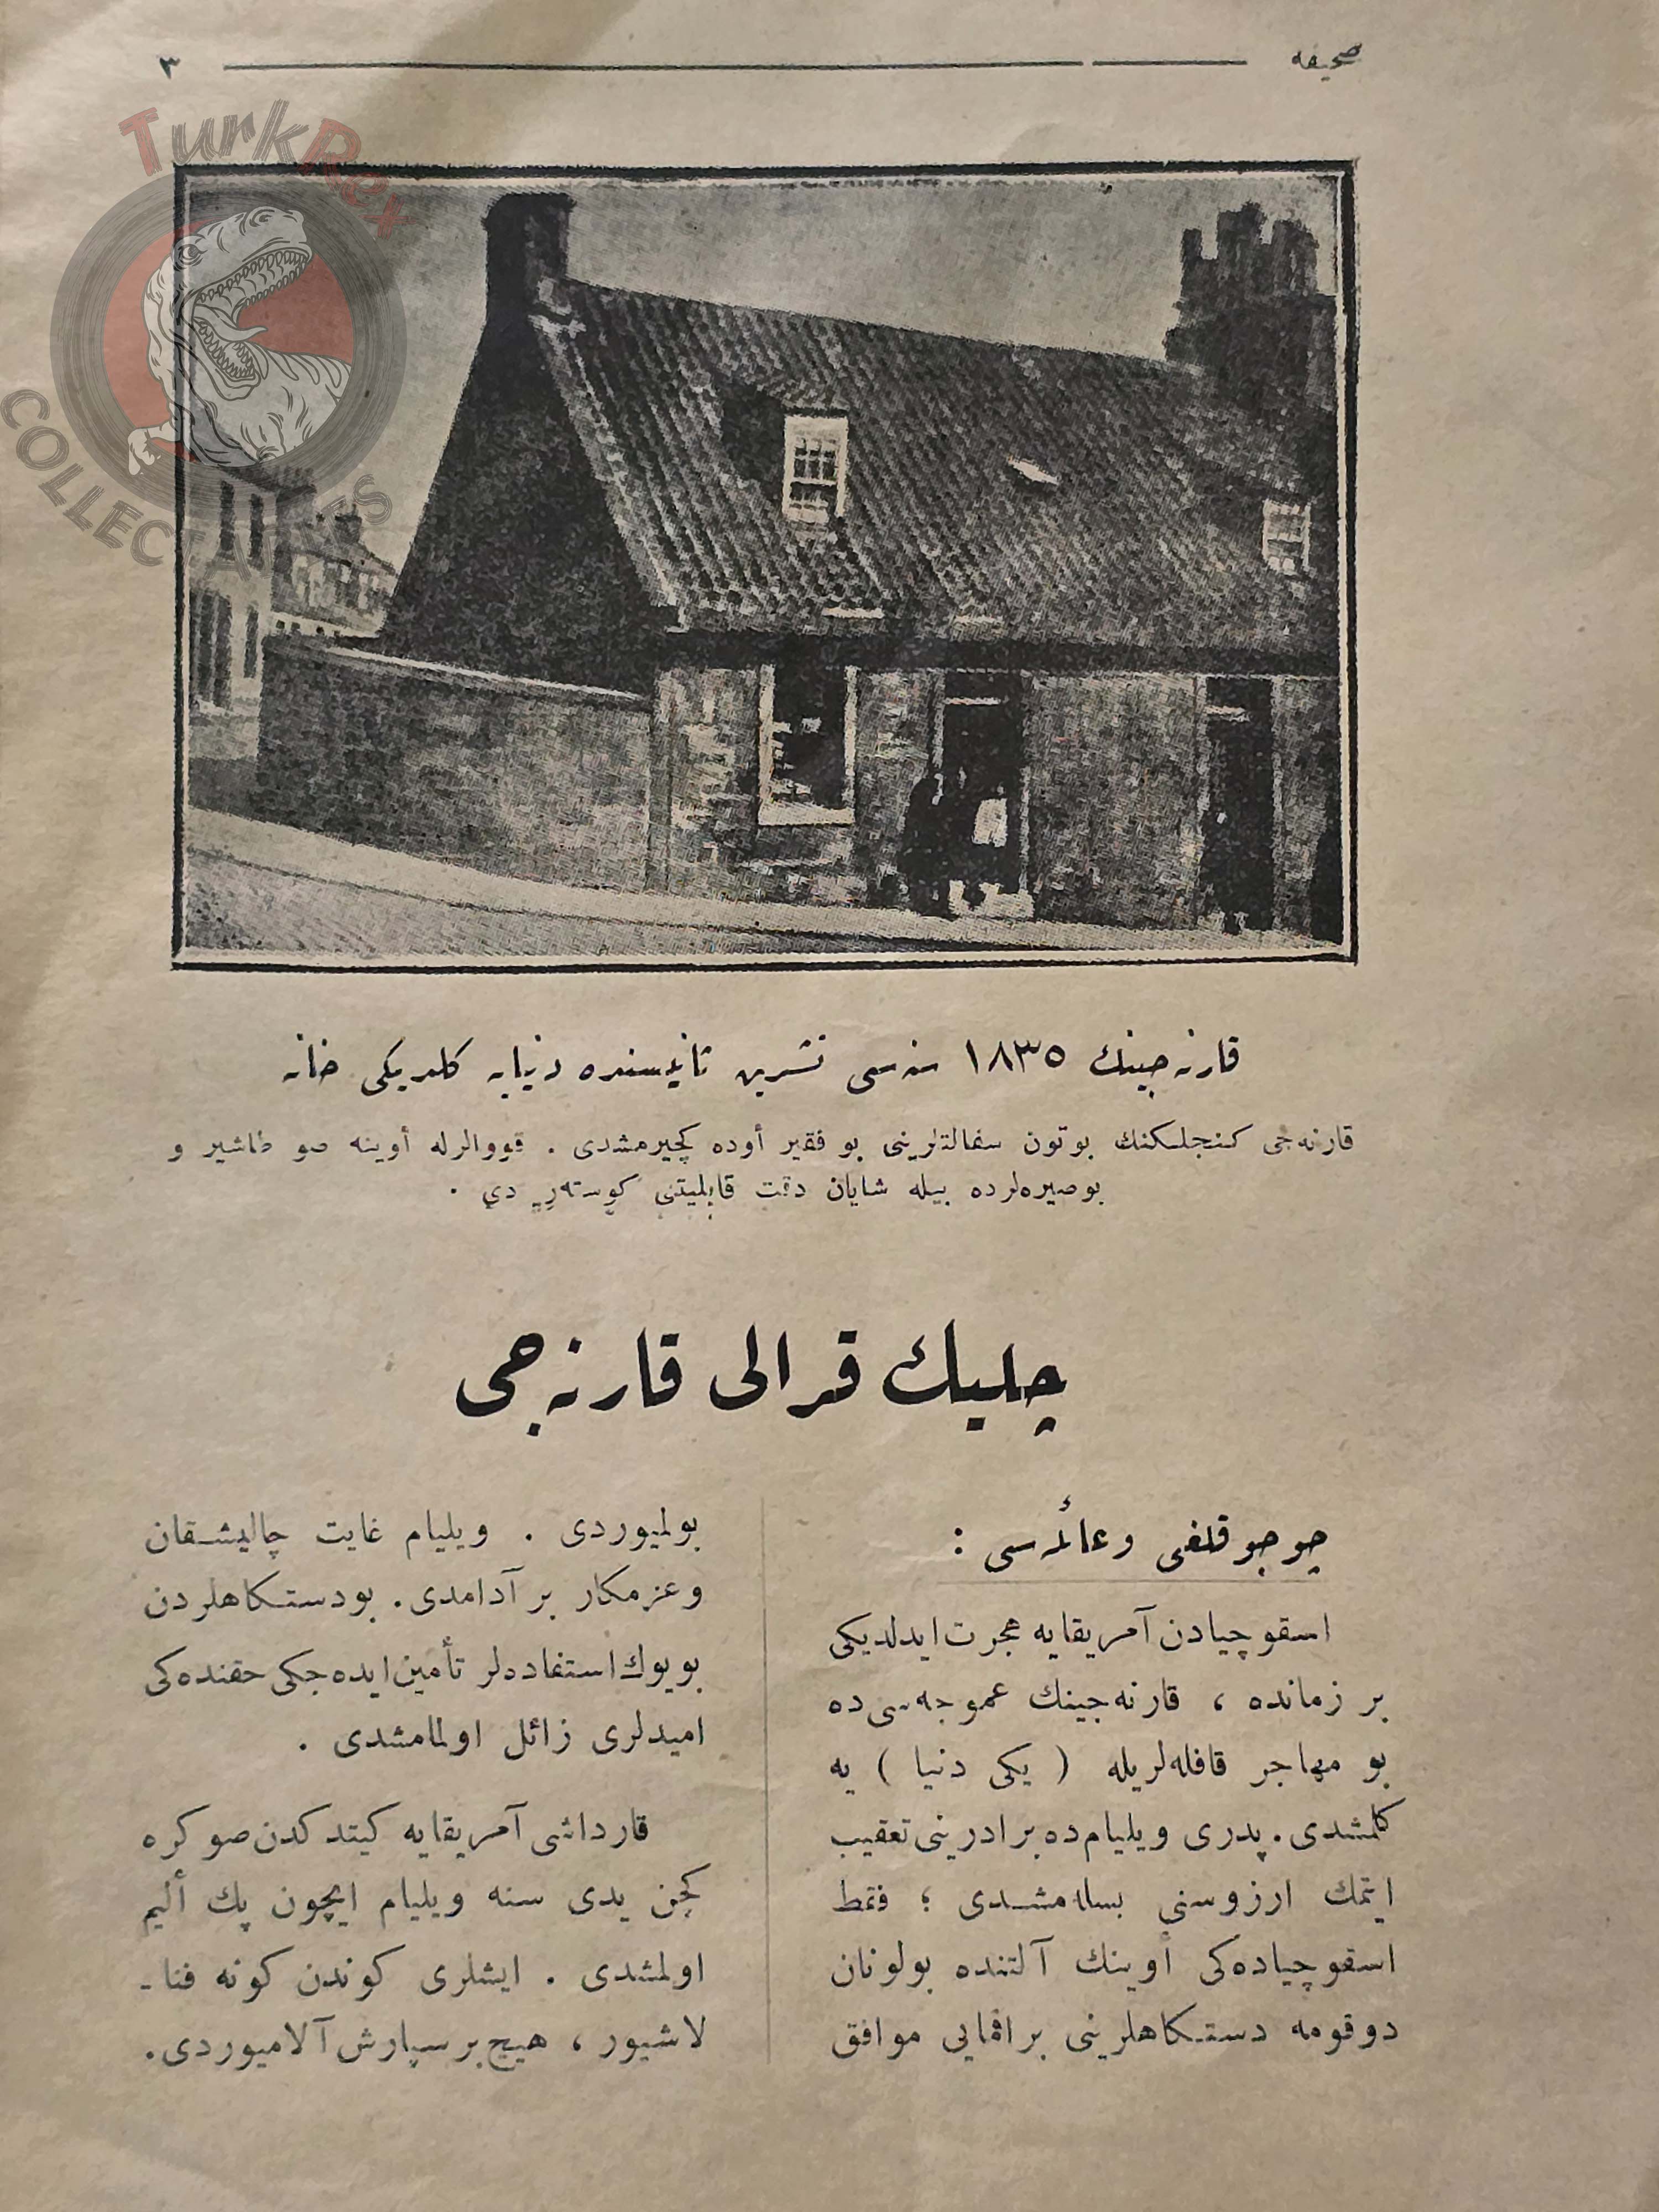 صحيفه ٣
TurkRex
COLLECTABLES
قارنه‌جينك ١٨٣٥ سنه‌سى تشرين ثانيسنده دنيايه كلديكى خانه
قارنه‌جى كنجلكنك بوتون سفالتلرينى بو فقير أوده كچيرمشدى . قووالرله أوينه صو طاشير و
بوصيره‌لرده بيله شايان دقت قابليتنى كوستەرير دى .
چليك قرالى قارنه‌جى
چوجوقلغى وعائله‌سى :
اسقوچيادن آمريقايه هجرت ايدلديكى
بر زمانده ، قارنه‌جينك عموجه‌سى ده
بو مهاجر قافله‌لريله ( يكى دنيا ) يه
كلمشدى . پدرى ويليام ده برادرينى تعقيب
ايتمك ارزوسنى بسله‌مشدى ؛ فقط
اسقوچياده‌كى أوينك آلتنده بولونان
دوقومه دستكاهلرينى براقمايى موافق
بولميوردى . ويليام غايت چاليشقان
وعزمكار بر آدامدى . بودستكاهلردن
بويوك استفاده‌لر تأمين ايده‌جكى حقنده‌كى
اميدلرى زائل اولمامشدى .
قارداشى آمريقايه كيتدكدن صوكره
كچن يدى سنه ويليام ايچون پك أليم
اولمشدى . ايشلرى كوندن كونه فنا-
لاشيور ، هيچ بر سپارش آلاميوردى .